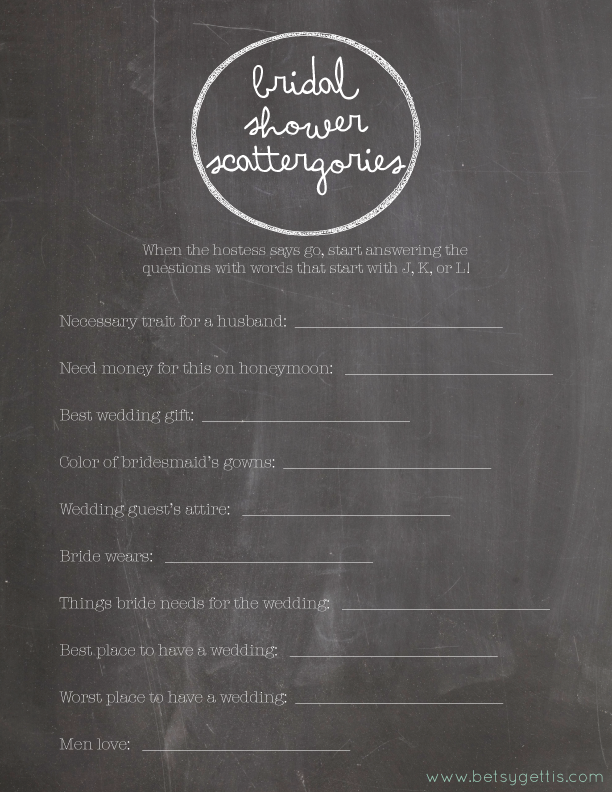 bridal
shower
scattergories
When the hostess says go, start answering the
questions with words that start with J, K, or L!
Necessary trait for a husband:
Need money for this on honeymoon:
Best wedding gift:
Color of bridesmaid's gowns:
Wedding guest's attire:
Bride wears:
Things bride needs for the wedding:
Best place to have a wedding:
Worst place to have a wedding:
Men love:
www.betsygettis.com